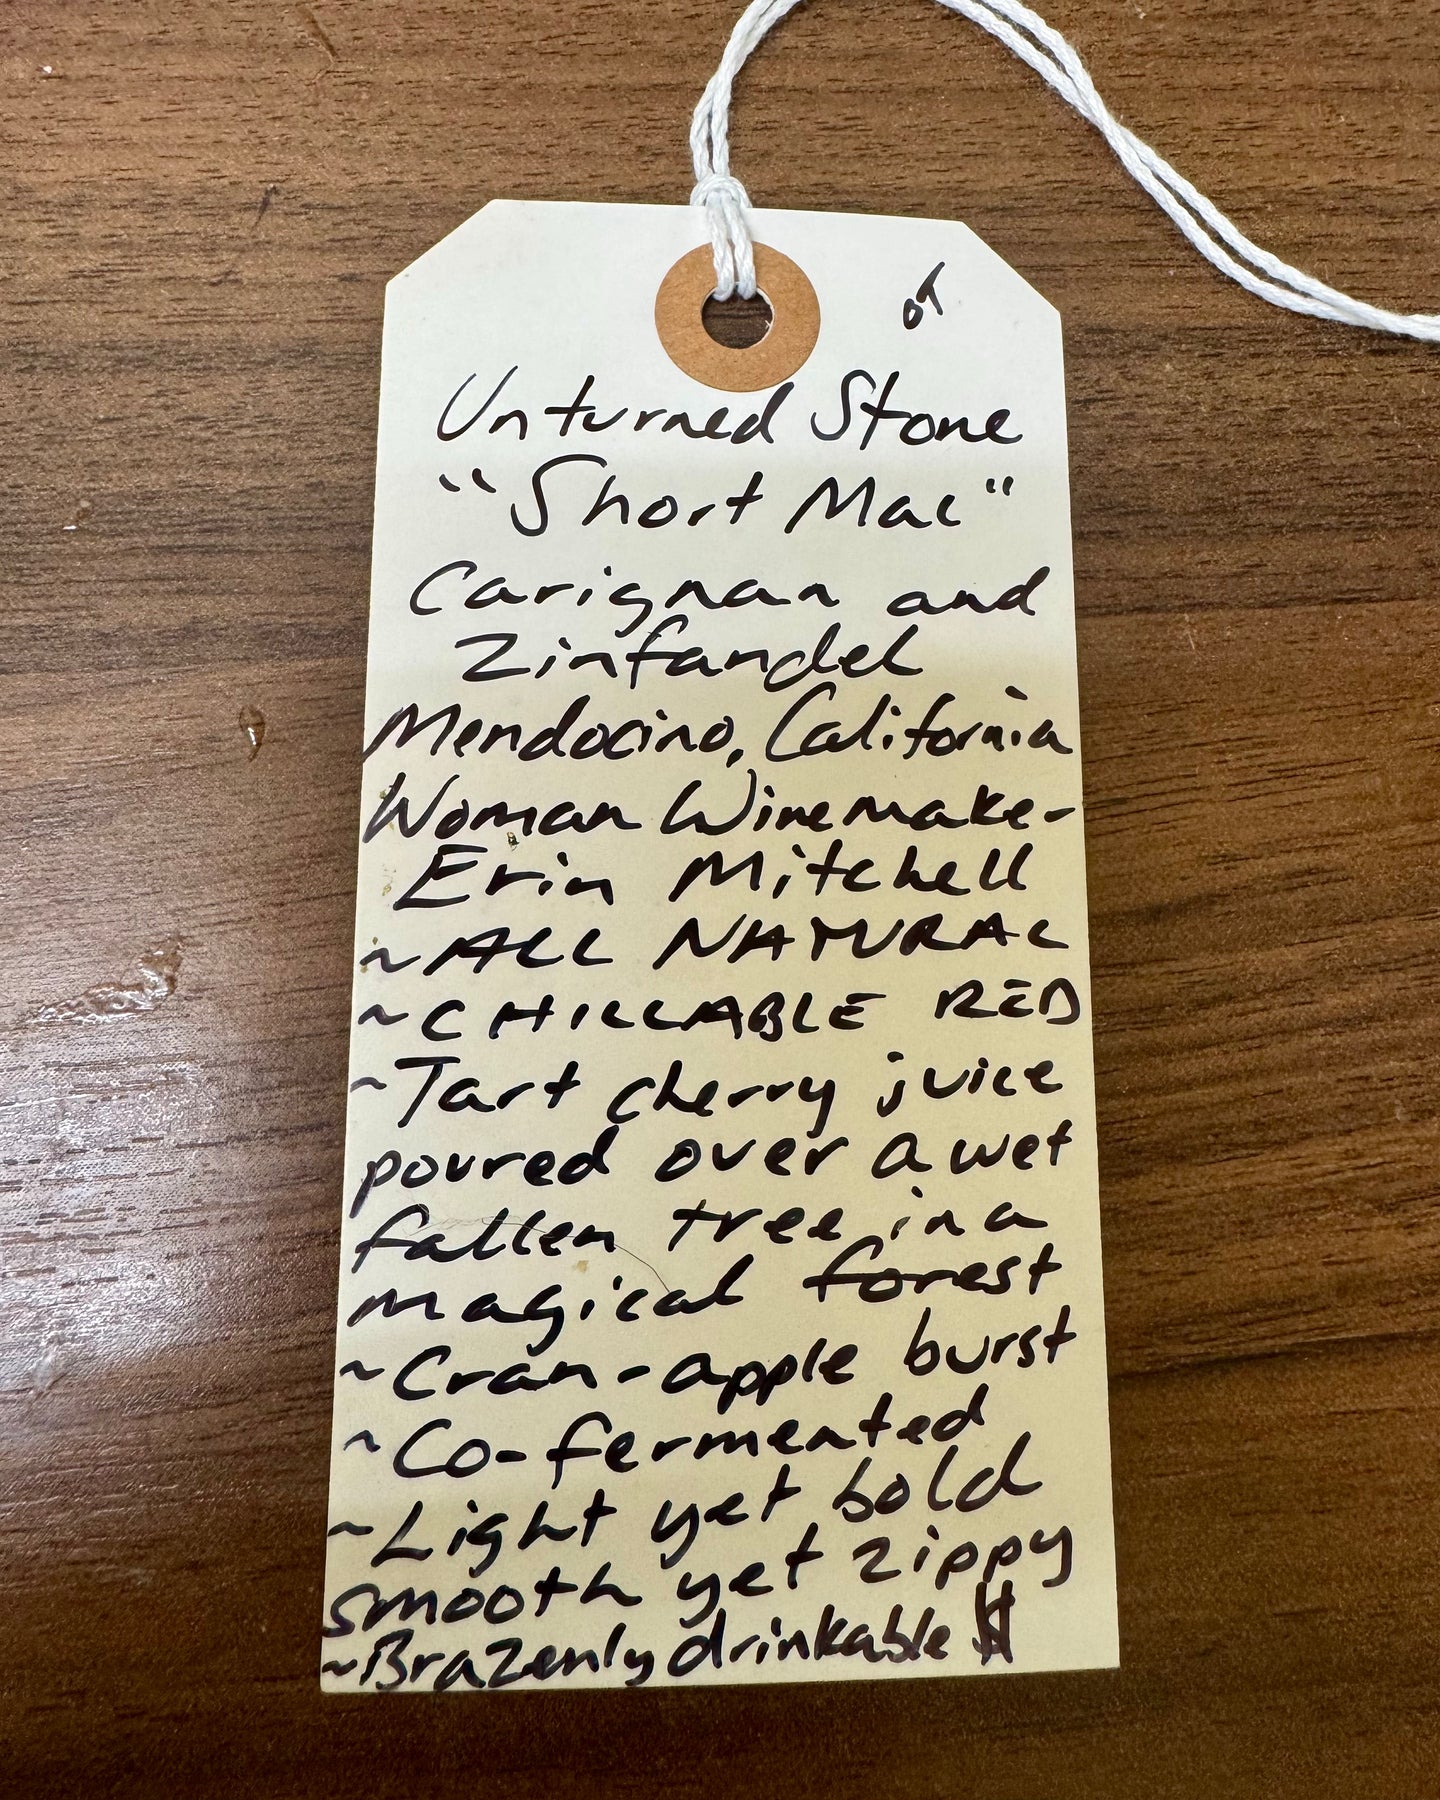 OT
Unturned Stone
"Short Mac"
Carignan and
Zinfandel
Mendocino, California
Woman Winemake-
Erin Mitchell
~ALL NATURAL
~CHILLABLE RED
~Tart cherry juice
poured over a wet
fallen tree in a
magical forest
~Cran-apple burst
~Co-fermented
~Light yet bold
smooth yet zippy
~Brazenly drinkable